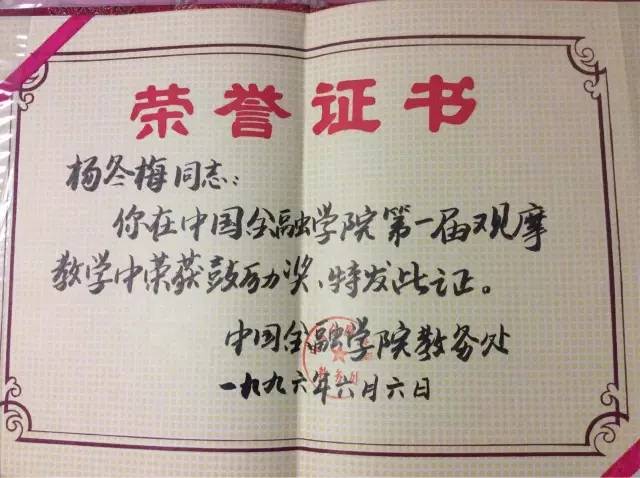 荣誉证书
杨冬梅同志：
你在中国金融学院第一届观摩
教学中荣获鼓励奖、特发此证。
中国金融学院教务处
一九九六年六月六日